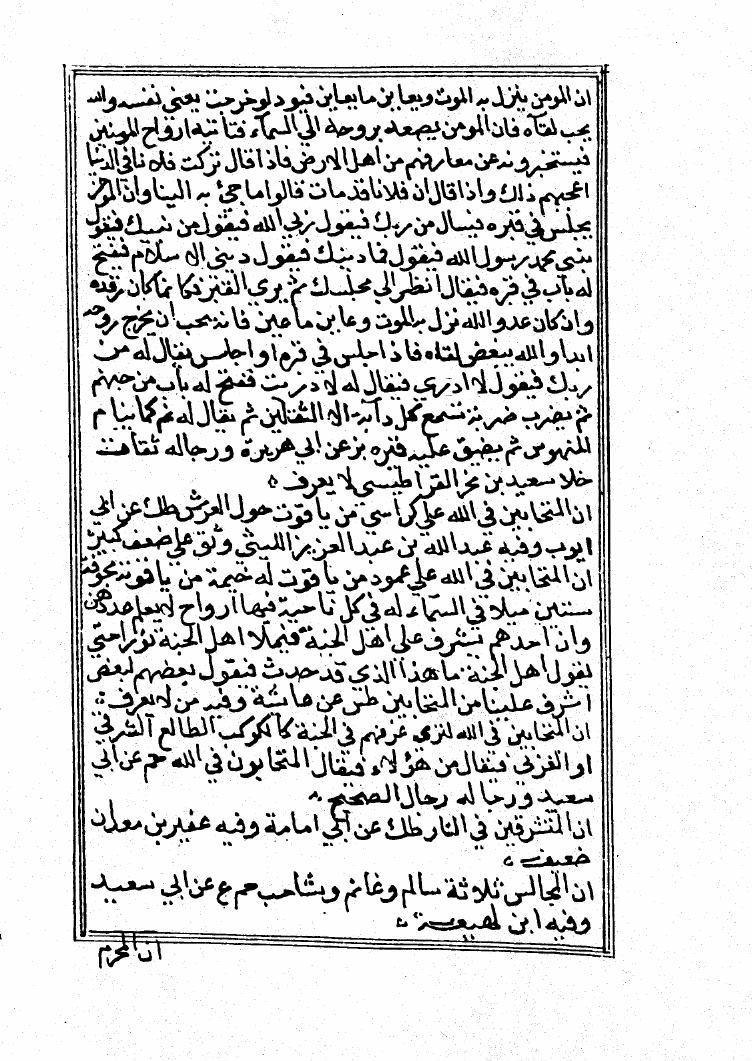 ان المومن ينزل به الموت ويعاين ما يعاين فيود لو خرجت يعني نفسه والله
يحب لقآه فان المومن يصعد بروحه الي السمآء فتأتيه ارواح المومنين
فيستخبرونه عن معارفهم من اهل الارض فاذا قال تركت فلانا في الدنيا
اعجبهم ذلك واذا قال ان فلانا قد مات قالوا ما جئ به الينا وان المومن
يجلس في قبره فيسال من ربك فيقول ربي الله فيقول من نبيك فيقول
نبيي محمد رسول الله فيقول فما دينك فيقول ديني الاسلام فيفتح
له باب في قبره فيقال انظر الي مجلسك ثم يري القبر فكانما كان رقده
وان كان عدو الله نزل به الموت وعاين ما عاين فانه يحب ان يخرج روحه
ابدا والله يبغض لقاه فاذا جلس في قبره او اجلس يقال له من
ربك فيقول لا ادري فيقال له لا دريت فيفتح له باب من جهنم
ثم يضرب ضربة تسمع كل دآبة الا الثقلين ثم يقال له نم كما ينام
المنهوس ثم يضيق عليه قبره بز عن ابي هريرة ورجاله ثقات
خلا سعيد بن بحر القراطيسي لا يعرف
ان المتحابين في الله علي كراسي من ياقوت حول العرش طك عن ابي
ايوب وفيه عبد الله بن عبد العزيز الليثي وثق علي ضعف كبير
ان المتحابين في الله علي عمود من ياقوت له خيمة من ياقوته مجوفة
ستين ميلا في السمآء له في كل ناحية فيها ارواح لا يعلم عددهن
وان احدهم يشرف علي اهل الجنة فيملا اهل الجنة نورا حتي
يقول اهل الجنة ما هذا الذي قد حدث فيقول بعضهم لبعض
اشرف علينا من المتحابين طس عن عائشة وفيه من لا يعرف
ان المتحابين في الله لتري غرفهم في الجنة كالكوكب الطالع الشرقي
او الغربي فيقال من هؤلاء فيقال المتحابون في الله حم عن ابي
سعيد ورجاله رجال الصحيح
ان المتشرقين في النار طك عن ابي امامة وفيه عفير بن معدان
ضعيف
ان المجالس ثلاثة سالم وغانم وشاحب حم ع عن ابي سعيد
وفيه ابن لهيعة
ان المحرم